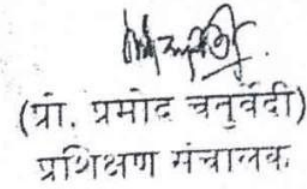 (प्रो. प्रमोद चतुर्वेदी)
प्रशिक्षण संचालक.